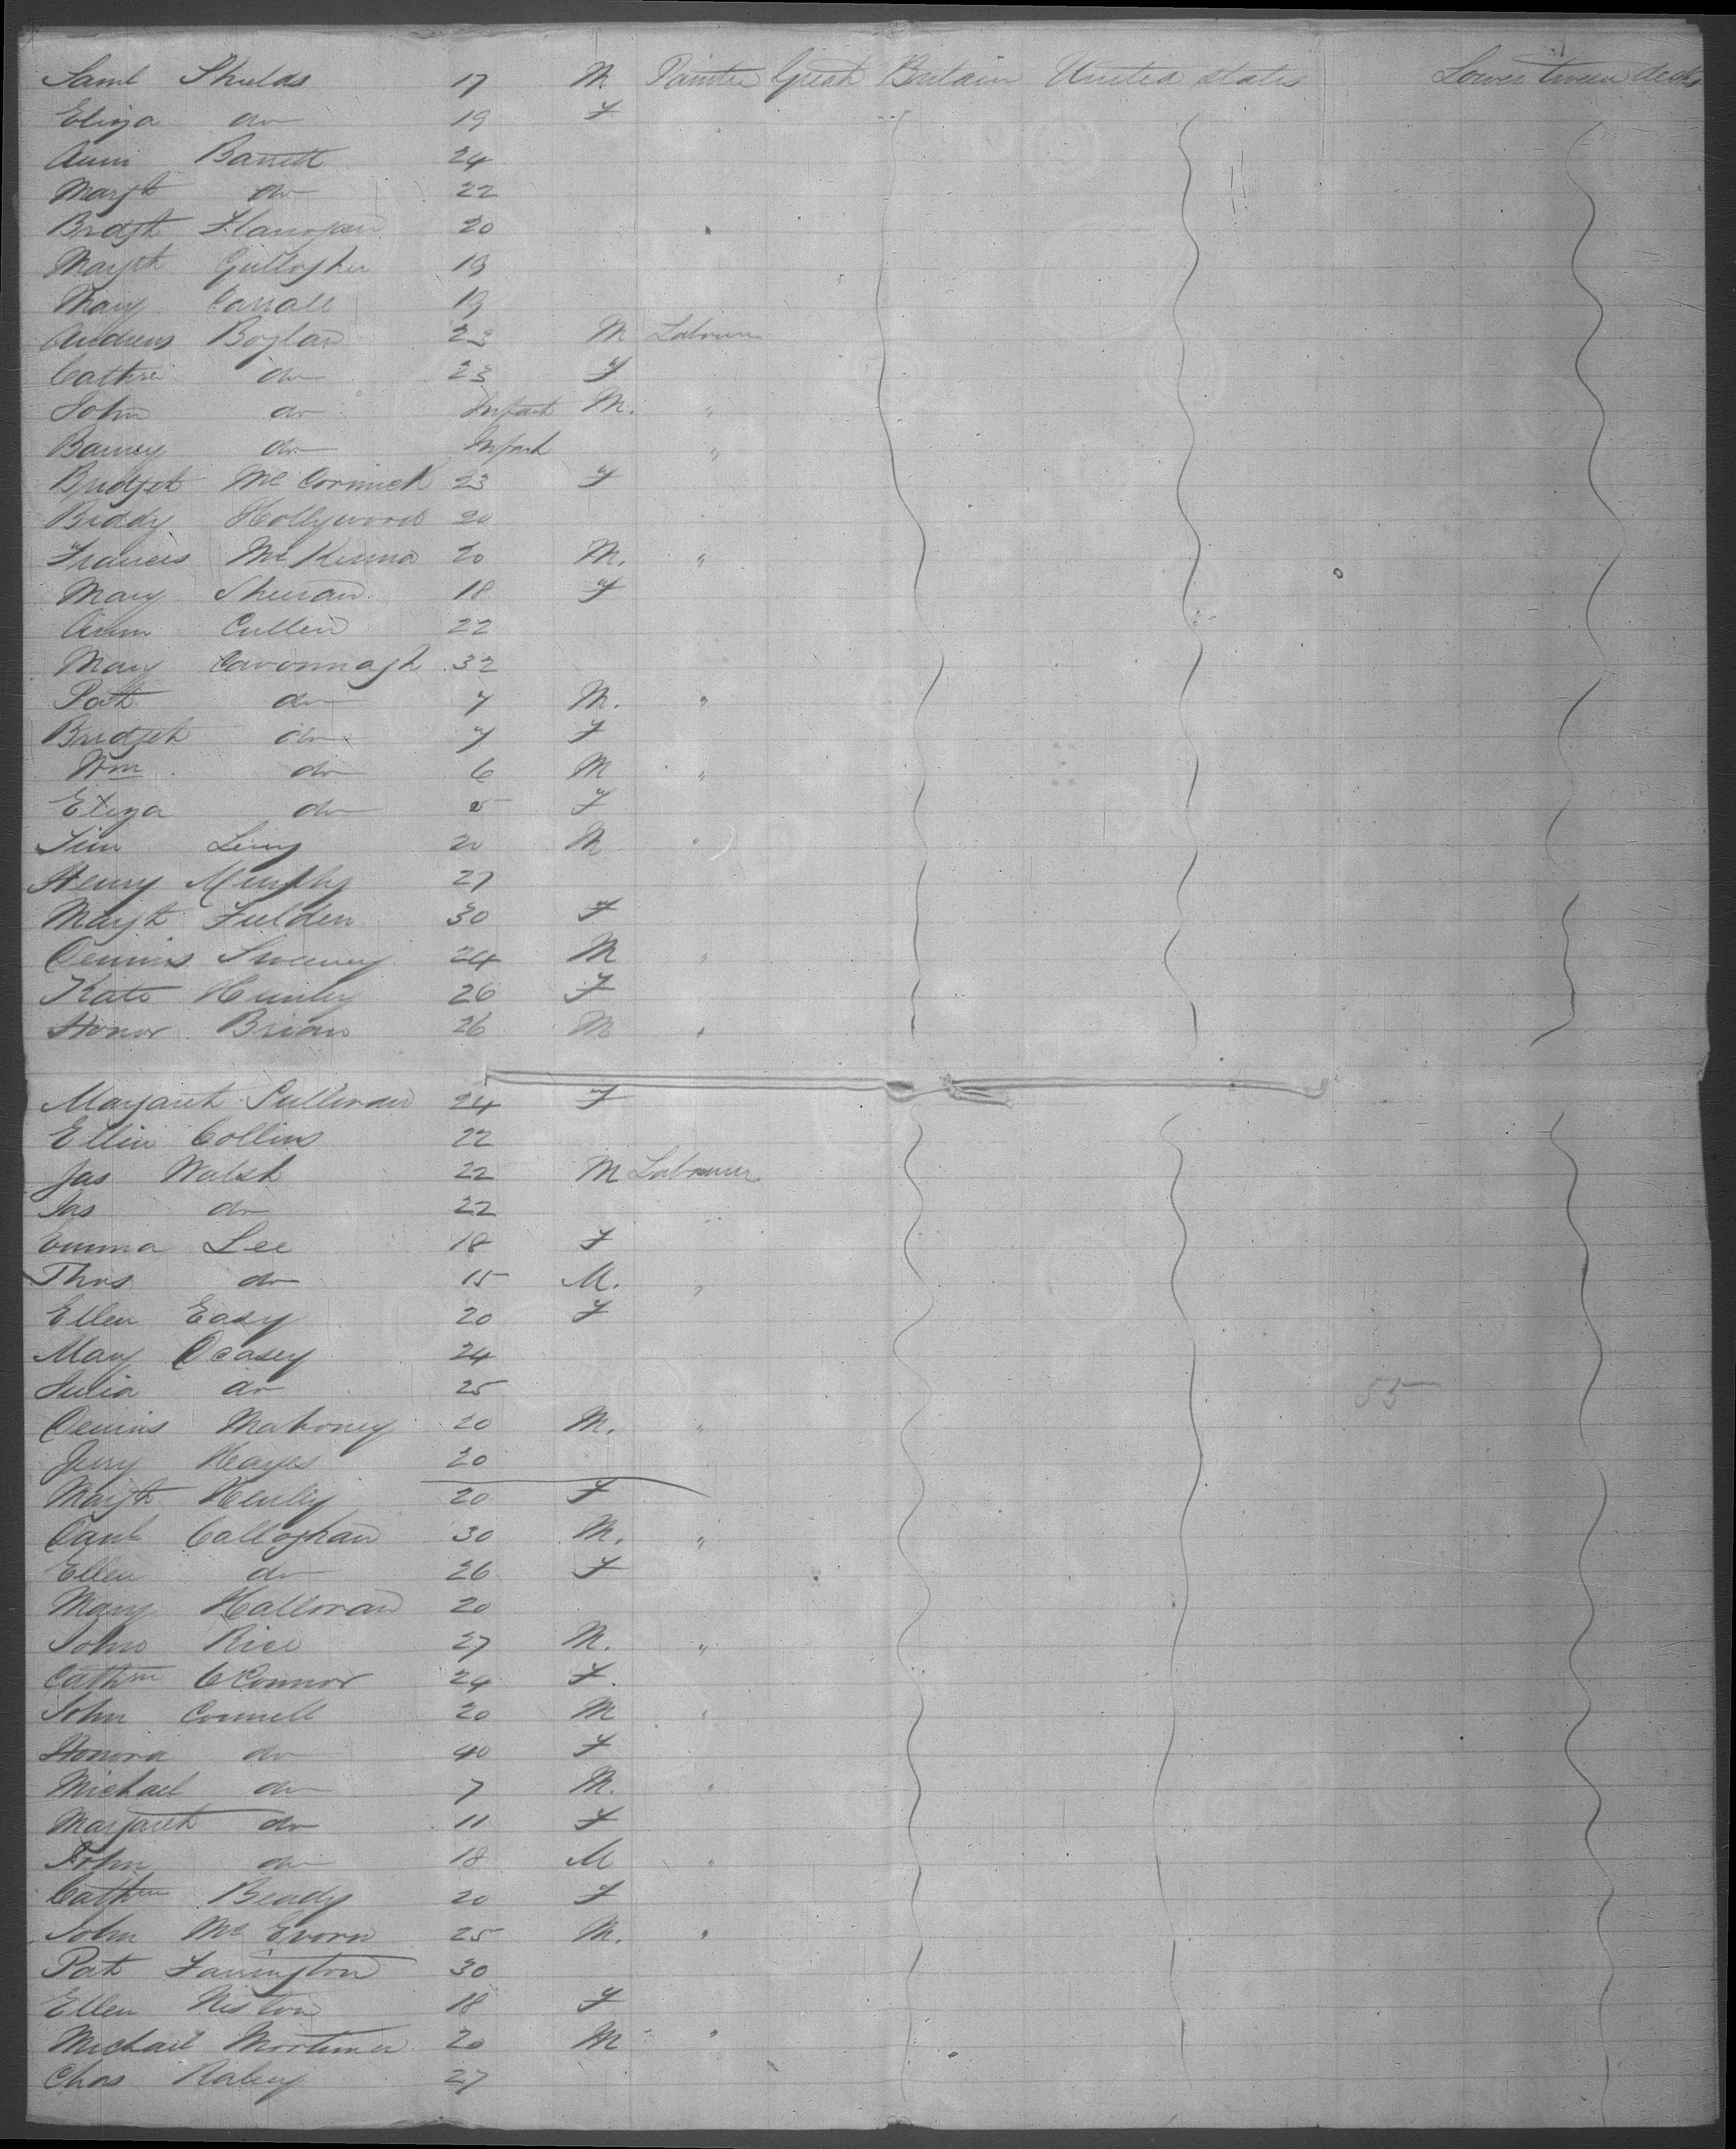 Saml Shields 17 M Painter Great Britain United States Lower tween decks
Eliza do 19 F
Ann Barrett 24
Margt do 22
Bridgt Flanagan 20
Margt Gallagher 19
Mary Carroll 19
Andrew Boylan 23 M Labourer
Cathre do 23 F
John do Infant M. "
Barney do Infant "
Bridget Mc Cormick 23 F
Biddy Hollywood 20
Francis Mc Kenna 20 M. "
Mary Sheran 18 F
Ann Cullen 22
Mary Cavonnagh 32
Pat do 7 M. "
Bridget do 7 F
Wm do 6 M "
Eliza do 5 F
Tim 20 M "
Henry Murphy 27
Margt Fielden 30 F
Dennis Sweeney 24 M "
Kate Hunley 26 F
Honor Brian 26 M "
Margaret Sullivan 24 F
Ellin Collins 22
Jas Walsh 22 M Labourer
Jas do 22
Emma Lee 18 F
Thos do 15 M. "
Ellen Easy 20 F
Mary Ocasey 24
Julia do 25
55
Dennis Mahoney 20 M. "
Jerry Hayes 20
Margt Henley 20 F
Danl Callaghan 30 M. "
Ellen do 26 F
Mary Halloran 20
John Rice 27 M. "
Cathrn O'Connor 24 F.
John Connell 20 M "
Honora do 40 F
Michael do 7 M. "
Margaret do 11 F
John do 18 M "
Cathrn Beady 20 F
John Mc Evorn 25 M. "
Pat Farrington 30
Ellen Niston 18 F
Michael Mortimer 20 M "
Chas Raley 27